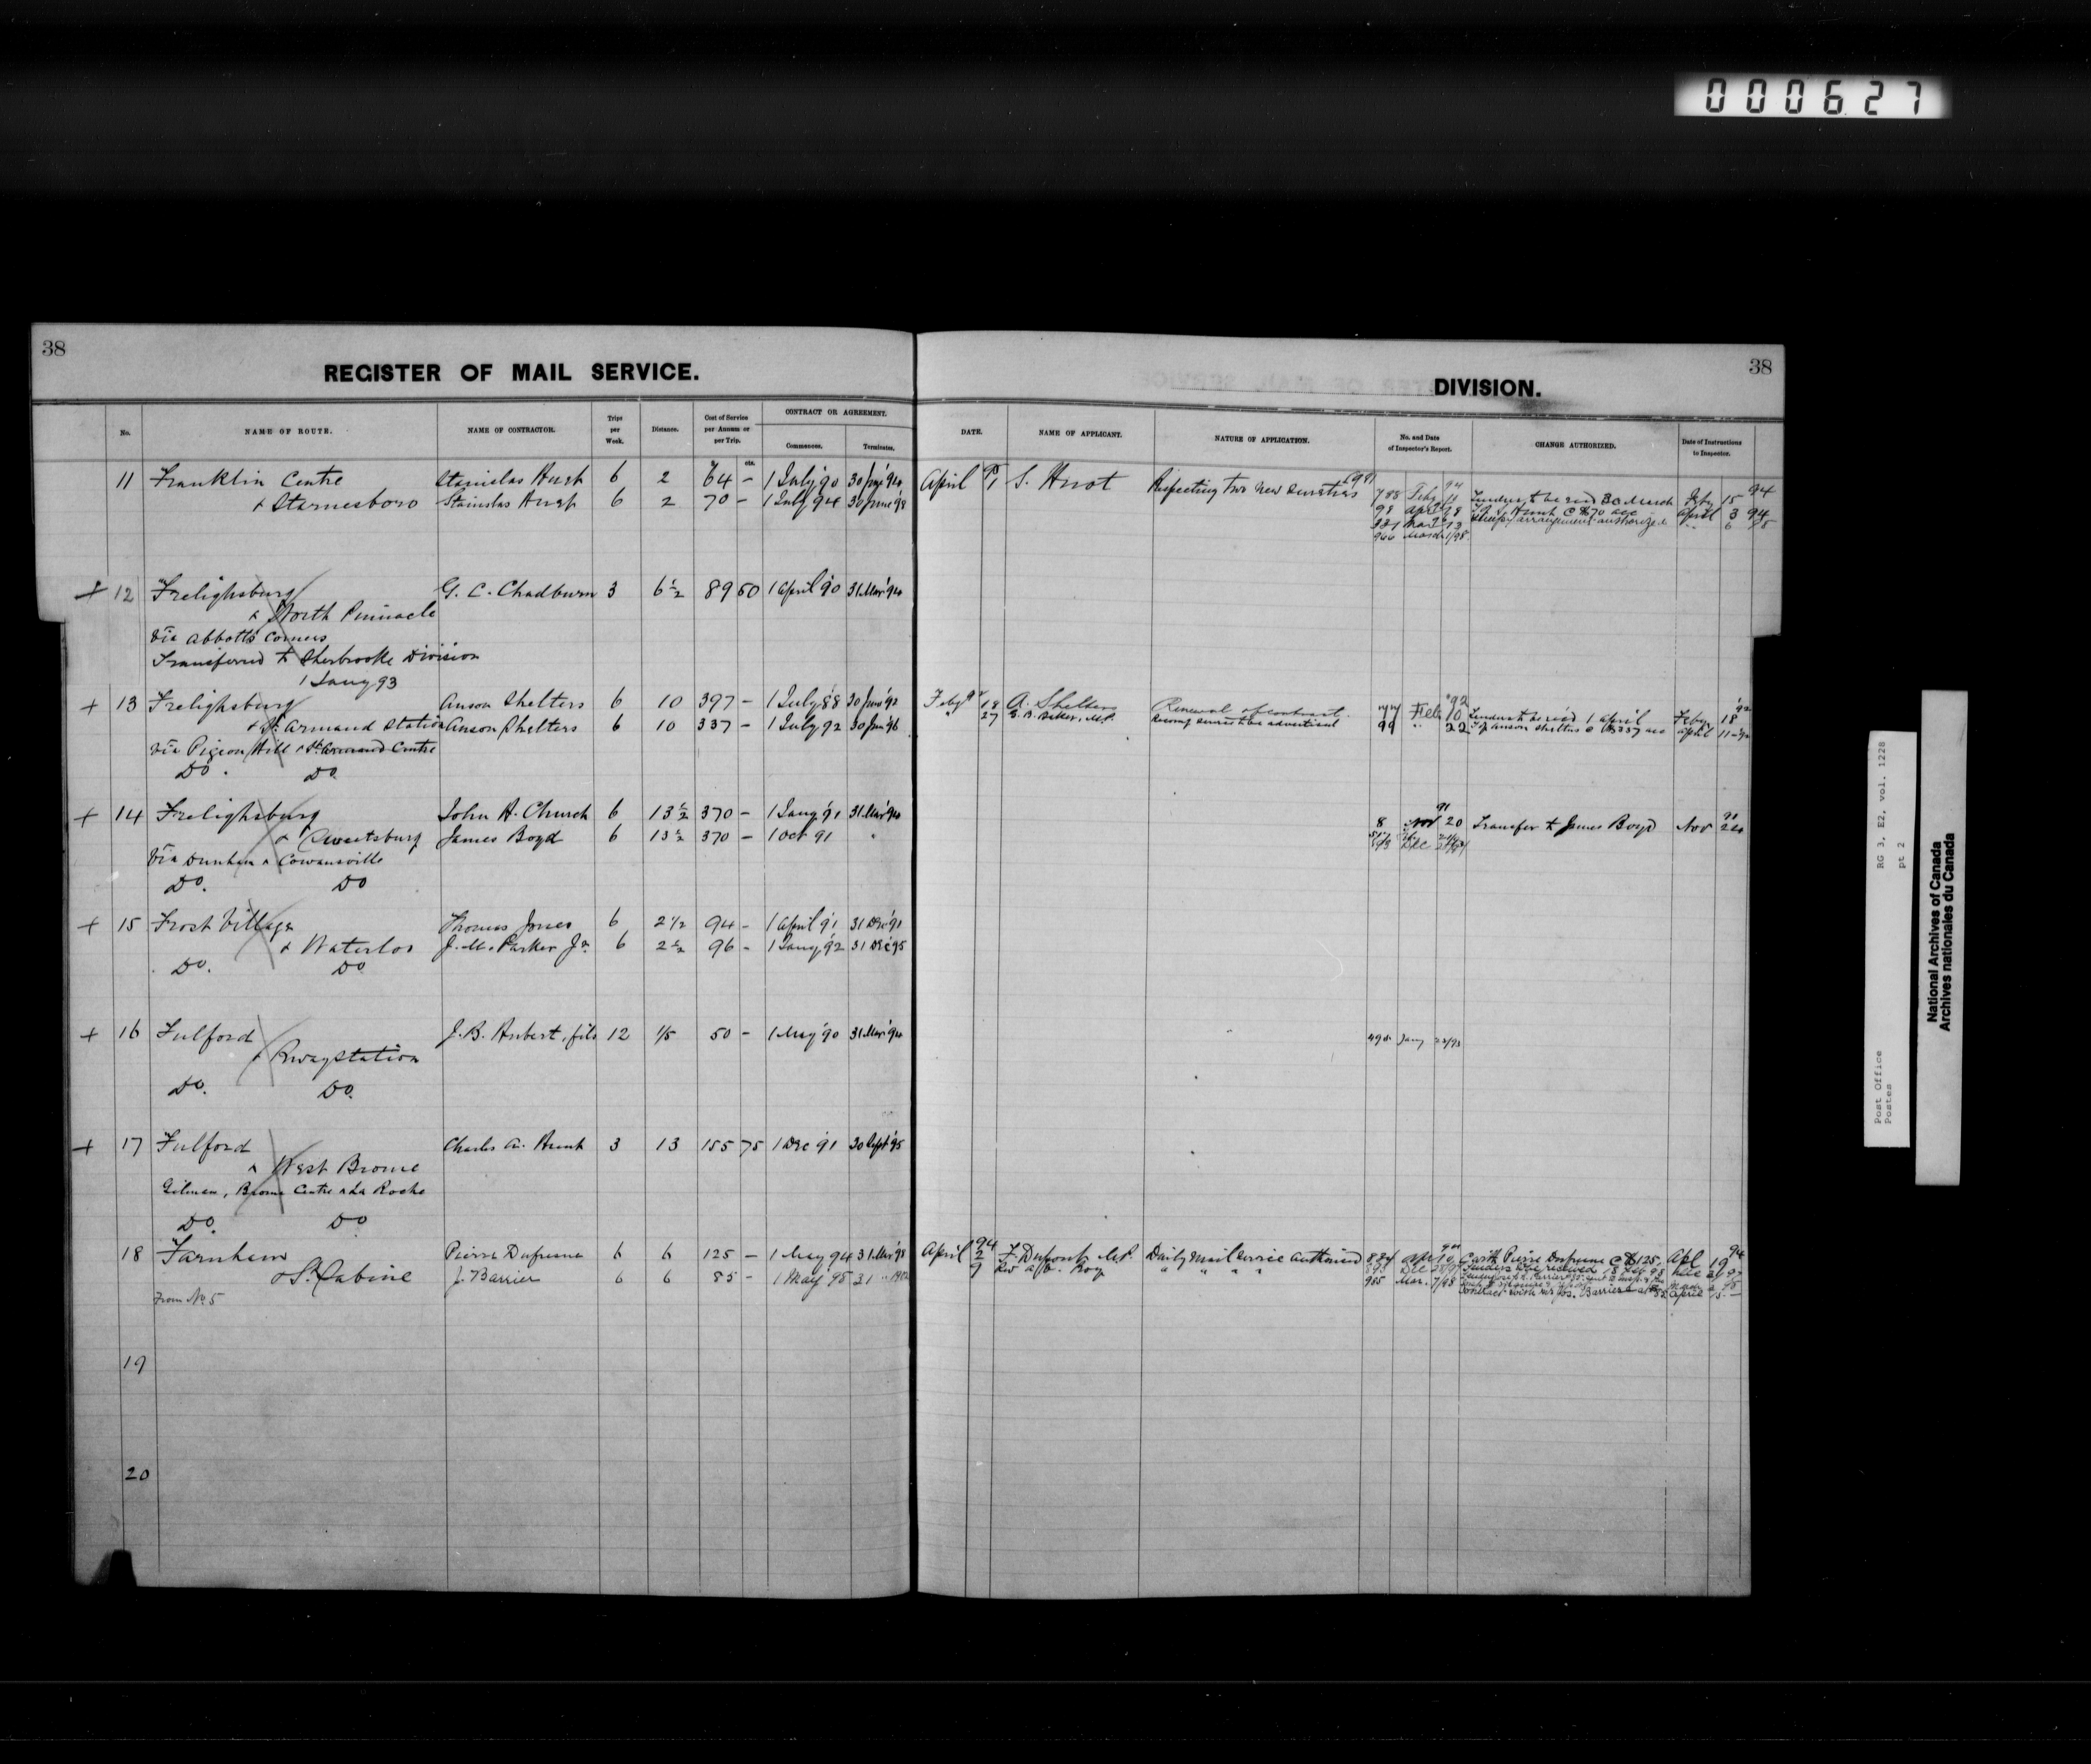 000627
38
REGISTER OF MAIL SERVICE.
No.
NAME OF ROUTE.
NAME OF CONTRACTOR.
Trips per Week.
Distance.
Cost of Service per Annum or per Trip.
CONTRACT OR AGREEMENT.
Commences.
Terminates.
cts.
11 Franklin Centre Stanislas Huot 6 2 64 - 1 July '90 30 June '94
& Starnesboro Stanislas Huot 6 2 70 - 1 July 94 30 June '98
+ 12 Frelighsburg G. C. Chadburn 3 6½ 89 50 1 April '90 31 Mar '94
& North Pinnacle
Via Abbotts Corners
Transferred to Sherbrooke Division
1 Jany 93
+ 13 Frelighsburg Anson Shelters 6 10 397 - 1 July '88 30 June '92
& St. Armand Station Anson Shelters 6 10 337 - 1 July 92 30 June '96
Via Pigeon Hill & St. Armand Centre
Do. Do.
+ 14 Frelighsburg John H. Church 6 13½ 370 - 1 Jany '91 31 Mar '94
& Sweetsburg James Boyd 6 13½ 370 - 1 Oct 91 "
Via Dunham & Cowansville
Do. Do
+ 15 Frost Village Thomas Jones 6 2½ 94 - 1 April '91 31 Dec '91
& Waterloo J. M. Parker Jr. 6 2½ 96 - 1 Jany '92 31 Dec '95
Do. Do
+ 16 Fulford J. B. Hubert, fils 12 1/5 50 - 1 May '90 31 Mar '94
& Rway Station
Do. Do.
+ 17 Fulford Charles A. Hunt 3 13 155 75 1 Dec '91 30 Sept '95
& West Brome
Gilman, Brome Centre & La Roche
Do. Do
18 Farnham Pierre Dufresne 6 6 125 - 1 May 94 31 Mar '98
& St. Sabine J. Barrier 6 6 85 - 1 May 98 31 " 1902
From No. 5
19
20
38
DIVISION.
DATE.
NAME OF APPLICANT.
NATURE OF APPLICATION.
No. and Date of Inspector's Report.
CHANGE AUTHORIZED.
Date of Instructions to Inspector.
April 1 S. Huot Respecting two new sureties
788 Feby 10 94 Tenders to be recd 30 March Feby 15 94
98 @ $70 acc April 3 94
arrangement authorized
966 March 1/98
Feby 18 A. Shelters Renewal of contract.
" 27 G. B. Baker, M.P.
Feb 10 '92 Tenders to be recd 1 April Feby 18 '92
99 " 22 Of Anson Shelters @ $337 acc April 11
8 Nov 20 91 Transfer to James Boyd Nov 24
Dec
Jany
April 2 94 F. Dupont M.P. Daily Mail Service Authorized
9 Rev. Roy " " " "
With Pierre Dufresne @ $125. Apl 19 94
985 Mar. 7/98
Contract with Mr Jos. Barrier April
Post Office
Postes
RG 3, E2, vol. 1228
pt 2
National Archives of Canada
Archives nationales du Canada